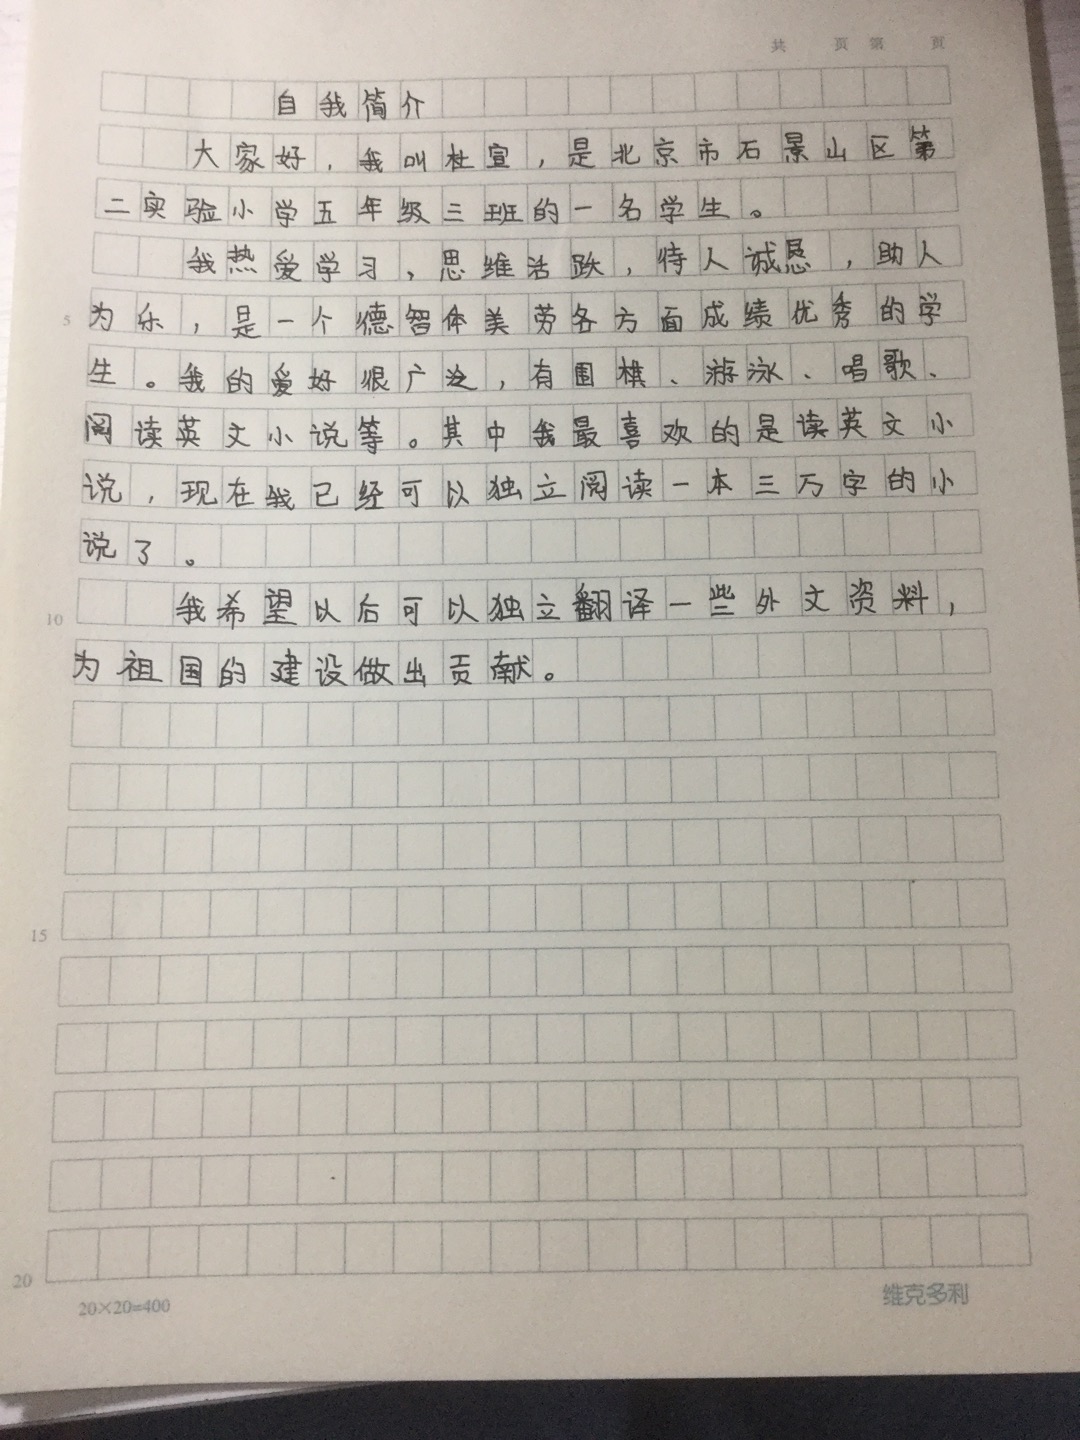 共 页 第 页
自我简介
大家好，我叫杜宣，是北京市石景山区第
二实验小学五年级三班的一名学生。
我热爱学习，思维活跃，待人诚恳，助人
5 为乐，是一个德智体美劳各方面成绩优秀的学
生。我的爱好很广泛，有围棋、游泳、唱歌、
阅读英文小说等。其中我最喜欢的是读英文小
说，现在我已经可以独立阅读一本三万字的小
说了。
10 我希望以后可以独立翻译一些外文资料，
为祖国的建设做出贡献。
15
20
20×20=400 维克多利